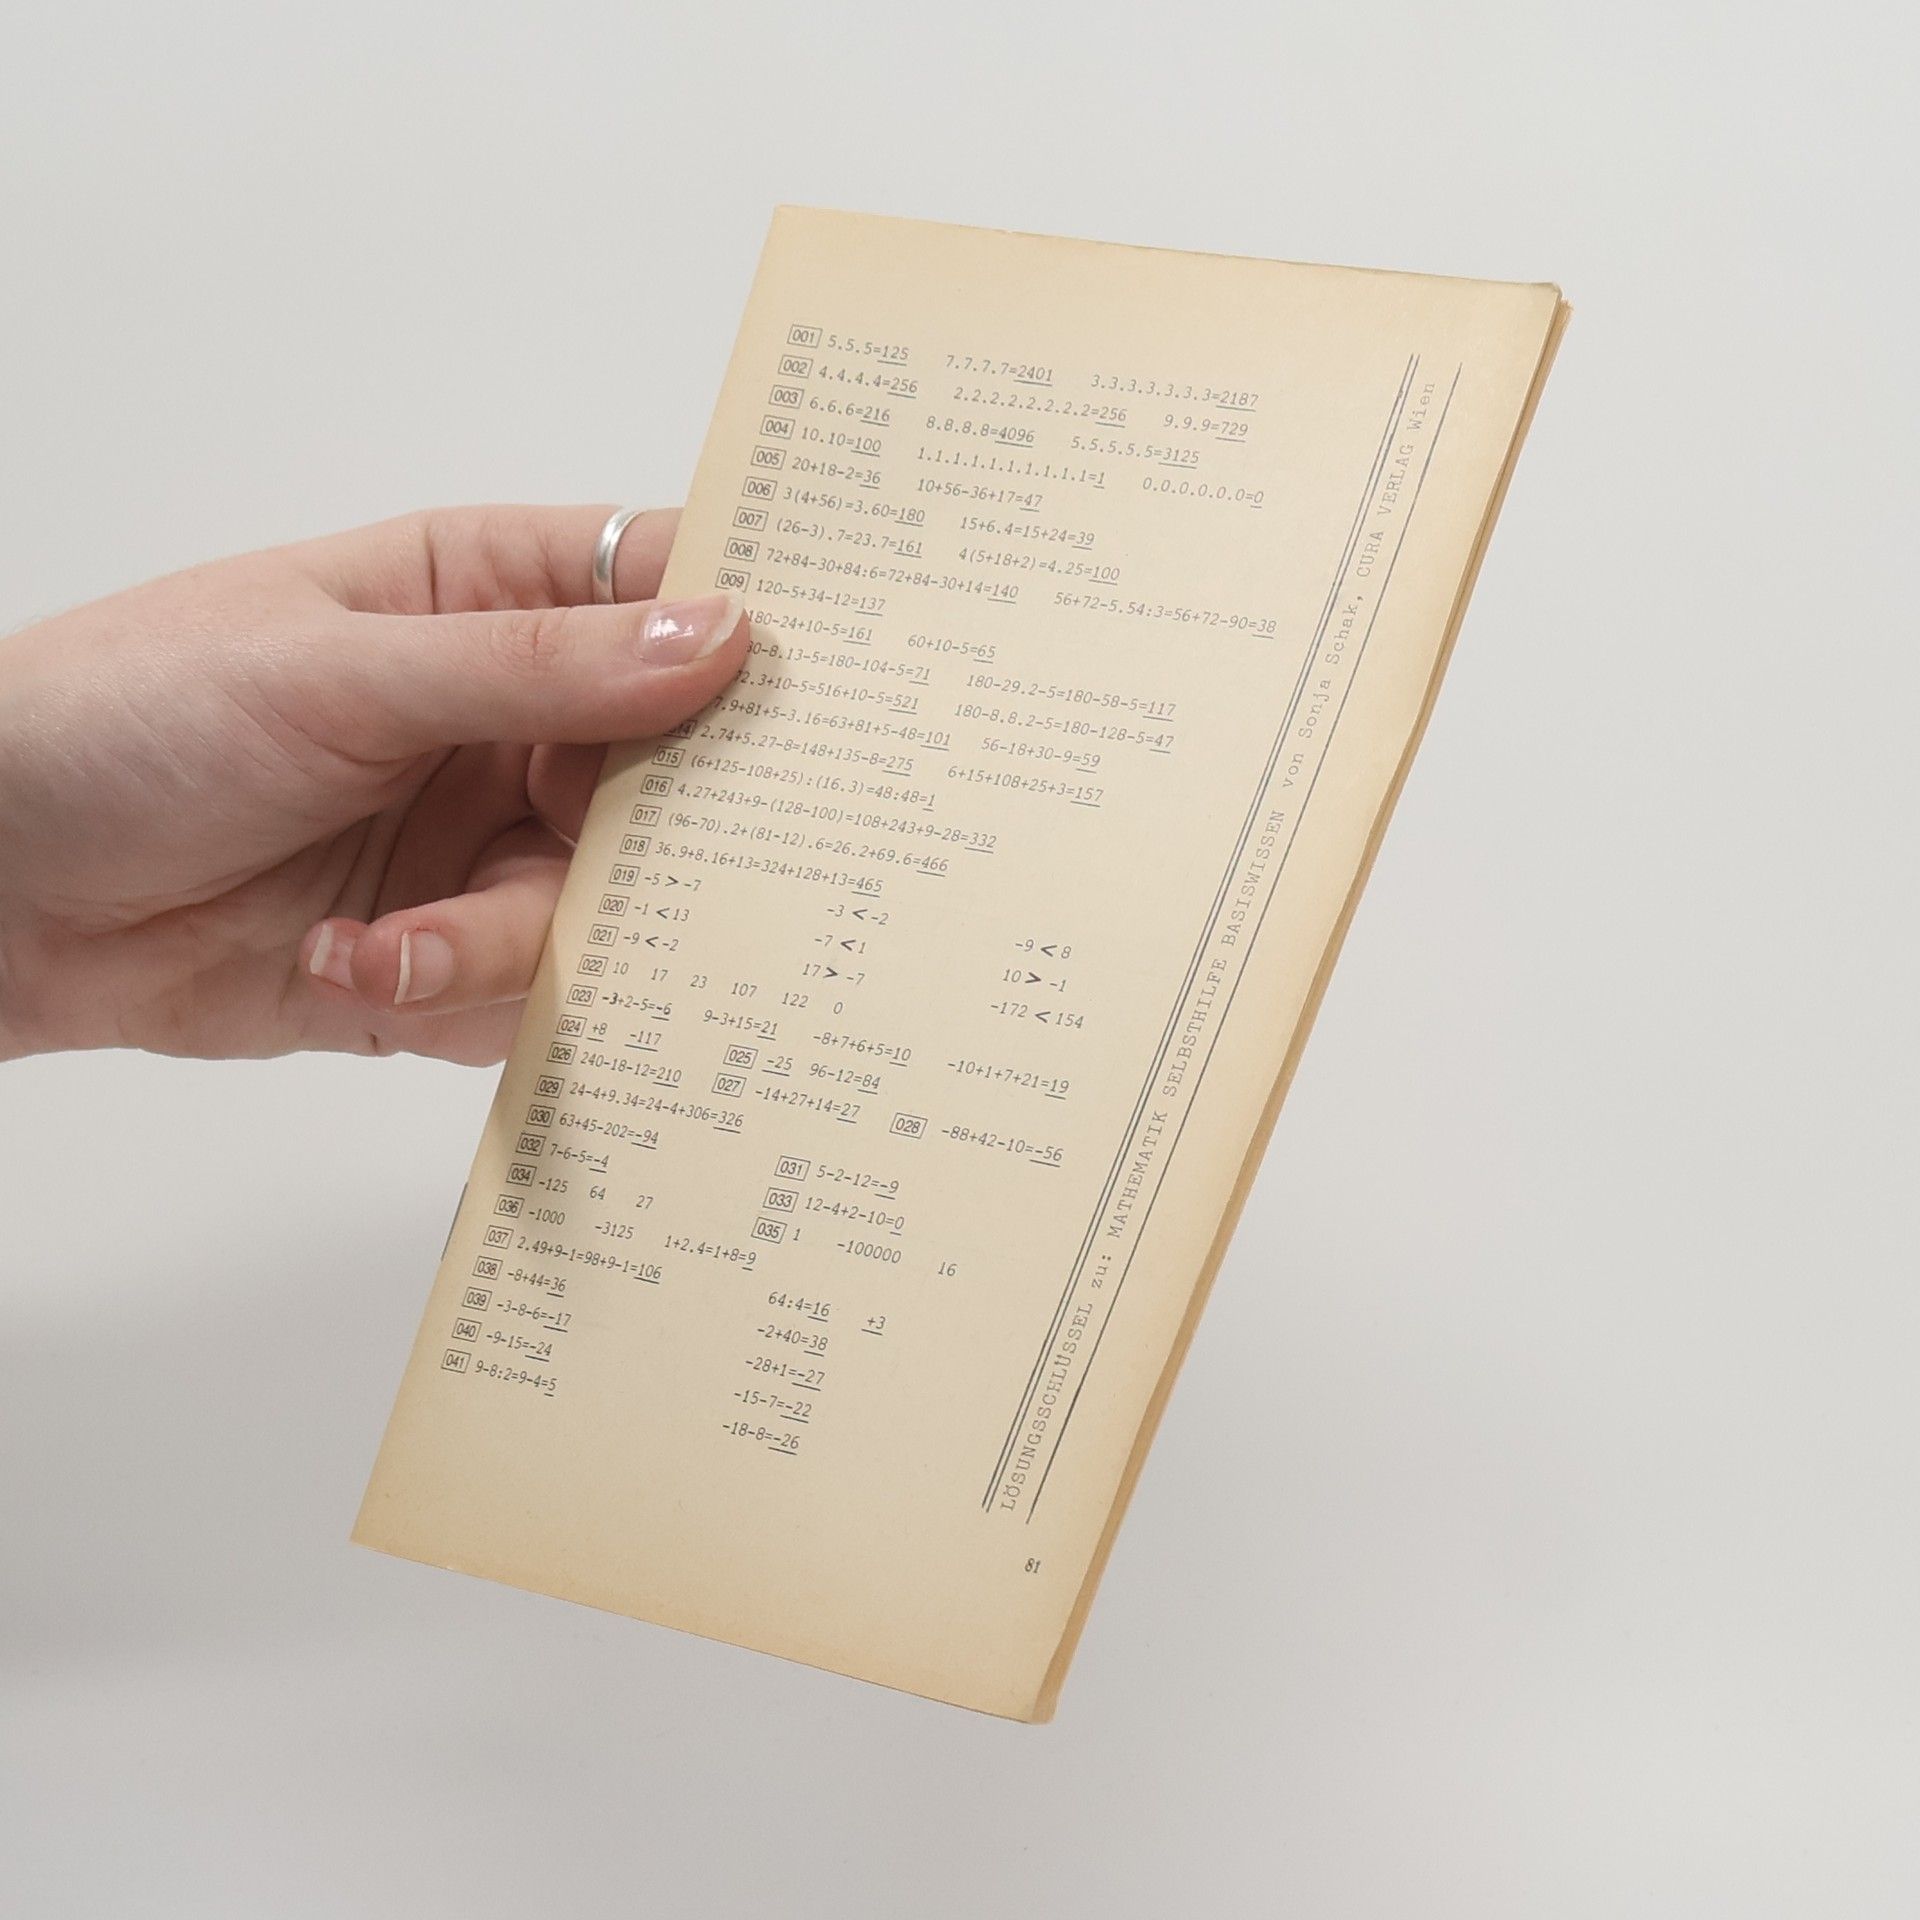 001 5.5.5=125 7.7.7.7=2401 3.3.3.3.3.3.3=2187
002 4.4.4.4=256 2.2.2.2.2.2.2.2=256 9.9.9=729
003 6.6.6=216 8.8.8.8=4096 5.5.5.5.5=3125
004 10.10=100 1.1.1.1.1.1.1.1.1.1=1 0.0.0.0.0.0=0
005 20+18-2=36 10+56-36+17=47
006 3(4+56)=3.60=180 15+6.4=15+24=39
007 (26-3).7=23.7=161 4(5+18+2)=4.25=100
008 72+84-30+84:6=72+84-30+14=140 56+72-5.54:3=56+72-90=38
009 120-5+34-12=137
180-24+10-5=161 60+10-5=65
80-8.13-5=180-104-5=71 180-29.2-5=180-58-5=117
72.3+10-5=516+10-5=521 180-8.8.2-5=180-128-5=47
7.9+81+5-3.16=63+81+5-48=101 56-18+30-9=59
014 2.74+5.27-8=148+135-8=275 6+15+108+25+3=157
015 (6+125-108+25):(16.3)=48:48=1
016 4.27+243+9-(128-100)=108+243+9-28=332
017 (96-70).2+(81-12).6=26.2+69.6=466
018 36.9+8.16+13=324+128+13=465
019 -5 > -7 -3 < -2 -9 < 8
020 -1 < 13 -7 < 1 10 > -1
021 -9 < -2 17 > -7 -172 < 154
022 10 17 23 107 122 0
023 -3+2-5=-6 9-3+15=21 -8+7+6+5=10 -10+1+7+21=19
024 +8 -117 025 -25 96-12=84
026 240-18-12=210 027 -14+27+14=27 028 -88+42-10=-56
029 24-4+9.34=24-4+306=326
030 63+45-202=-94 031 5-2-12=-9
032 7-6-5=-4 033 12-4+2-10=0
034 -125 64 27 035 1 -100000 16
036 -1000 -3125 1+2.4=1+8=9
037 2.49+9-1=98+9-1=106 64:4=16 +3
038 -8+44=36 -2+40=38
039 -3-8-6=-17 -28+1=-27
040 -9-15=-24 -15-7=-22
041 9-8:2=9-4=5 -18-8=-26
LÖSUNGSSCHLÜSSEL zu: MATHEMATIK SELBSTHILFE BASISWISSEN von Sonja Schak, CURA VERLAG Wien
81